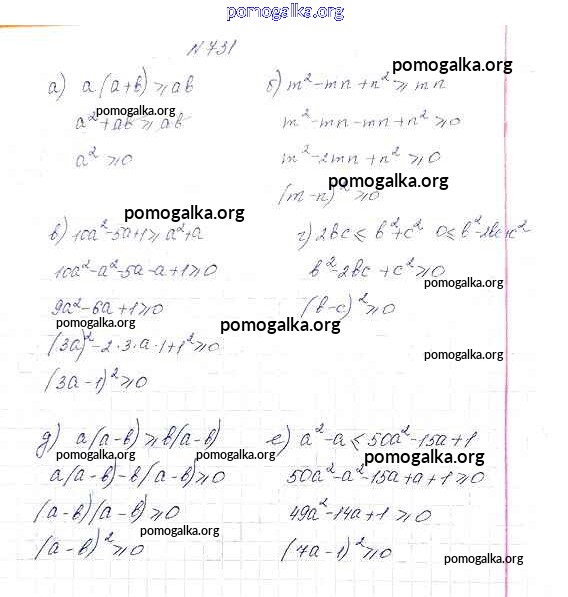 pomogalka.org
N 731
а) a(a+b) ⩾ ab
a² + ab ⩾ ab
a² ⩾ 0
б) m² - mn + n² ⩾ mn
m² - mn - mn + n² ⩾ 0
m² - 2mn + n² ⩾ 0
(m - n)² ⩾ 0
pomogalka.org
pomogalka.org
pomogalka.org
в) 10a² - 5a + 1 ⩾ a² + a
10a² - a² - 5a - a + 1 ⩾ 0
9a² - 6a + 1 ⩾ 0
(3a)² - 2·3·a·1 + 1² ⩾ 0
(3a - 1)² ⩾ 0
г) 2bc ⩽ b² + c² 0 ⩽ b² - 2bc + c²
b² - 2bc + c² ⩾ 0
(b - c)² ⩾ 0
pomogalka.org
pomogalka.org
pomogalka.org
pomogalka.org
pomogalka.org
д) a(a - b) ⩾ b(a - b)
a(a - b) - b(a - b) ⩾ 0
(a - b)(a - b) ⩾ 0
(a - b)² ⩾ 0
е) a² - a ⩽ 50a² - 15a + 1
50a² - a² - 15a + a + 1 ⩾ 0
49a² - 14a + 1 ⩾ 0
(7a - 1)² ⩾ 0
pomogalka.org
pomogalka.org
pomogalka.org
pomogalka.org
pomogalka.org